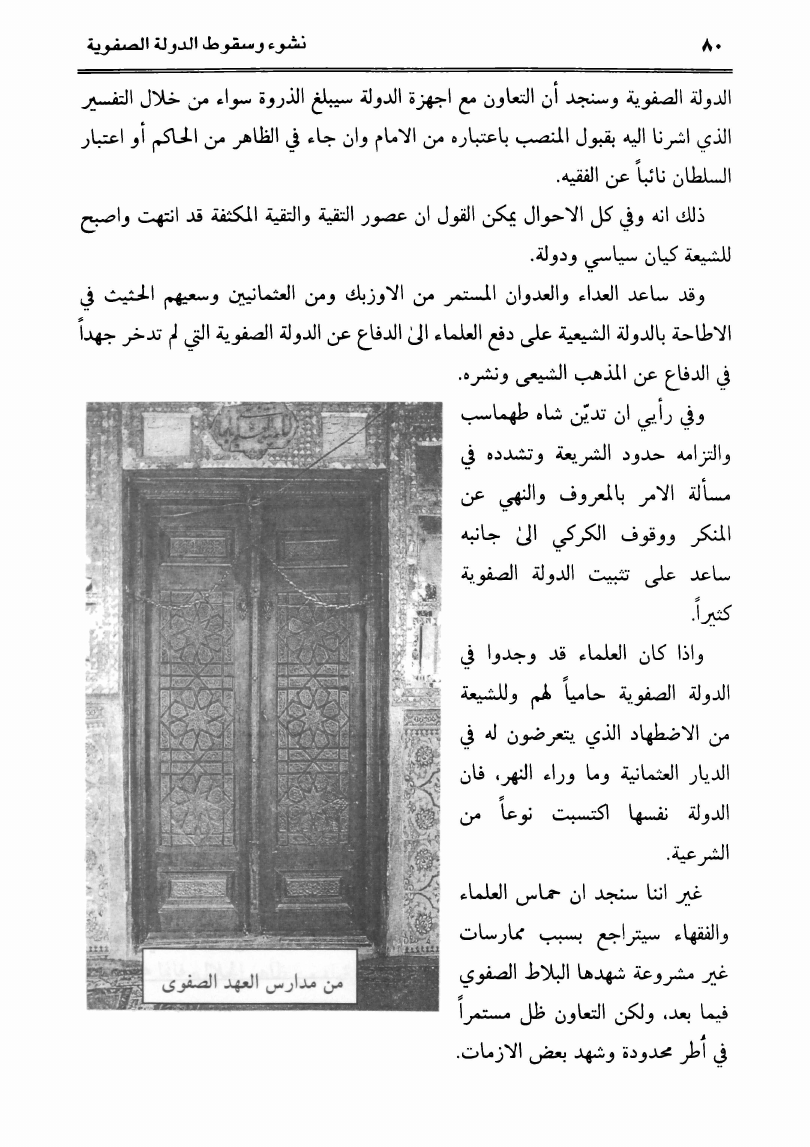 ٨٠
نشوء وسقوط الدولة الصفوية
الدولة الصفوية وسنجد أن التعاون مع اجهزة الدولة سيبلغ الذروة سواء من خلال التفسير
الذي اشرنا اليه بقبول المنصب باعتباره من الامام وان جاء في الظاهر من الحاكم أو اعتبار
السلطان نائباً عن الفقيه.
ذلك انه وفي كل الاحوال يمكن القول ان عصور التقية والتقية المكثفة قد انتهت واصبح
للشيعة كيان سياسي ودولة.
وقد ساعد العداء والعدوان المستمر من الاوزبك ومن العثمانيين وسعيهم الحثيث في
الاطاحة بالدولة الشيعية على دفع العلماء الىٰ الدفاع عن الدولة الصفوية التي لم تدخر جهداً
في الدفاع عن المذهب الشيعى ونشره.
وفي رأيي ان تديّن شاه طهماسب
والتزامه حدود الشريعة وتشدده في
مسألة الامر بالمعروف والنهي عن
المنكر ووقوف الكركي الىٰ جانبه
ساعد على تثبيت الدولة الصفوية
كثيراً.
واذا كان العلماء قد وجدوا في
الدولة الصفوية حامياً لهم وللشيعة
من الاضطهاد الذي يتعرضون له في
الديار العثمانية وما وراء النهر، فان
الدولة نفسها اكتسبت نوعاً من
الشرعية.
غير اننا سنجد ان حماس العلماء
والفقهاء سيتراجع بسبب ممارسات
غير مشروعة شهدها البلاط الصفوي
فيما بعد، ولكن التعاون ظل مستمراً
في أُطر محدودة وشهد بعض الازمات.
من مدارس العهد الصفوى